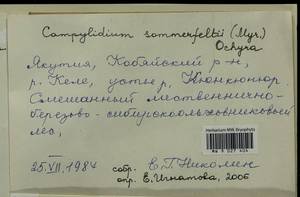 Campylidium sommerfeltii (Myr.)
Ochyra
Якутия, Кобяйский р-н,
р. Келе, устье р. Кюнкюнюр
Смешанный лиственнично-
березово-сибирскоольховниковый
лес,
Herbarium MW, Bryophyta
25.VII.1984 собр. Е.Г. Николин
опр. Е. Игнатова, 2006